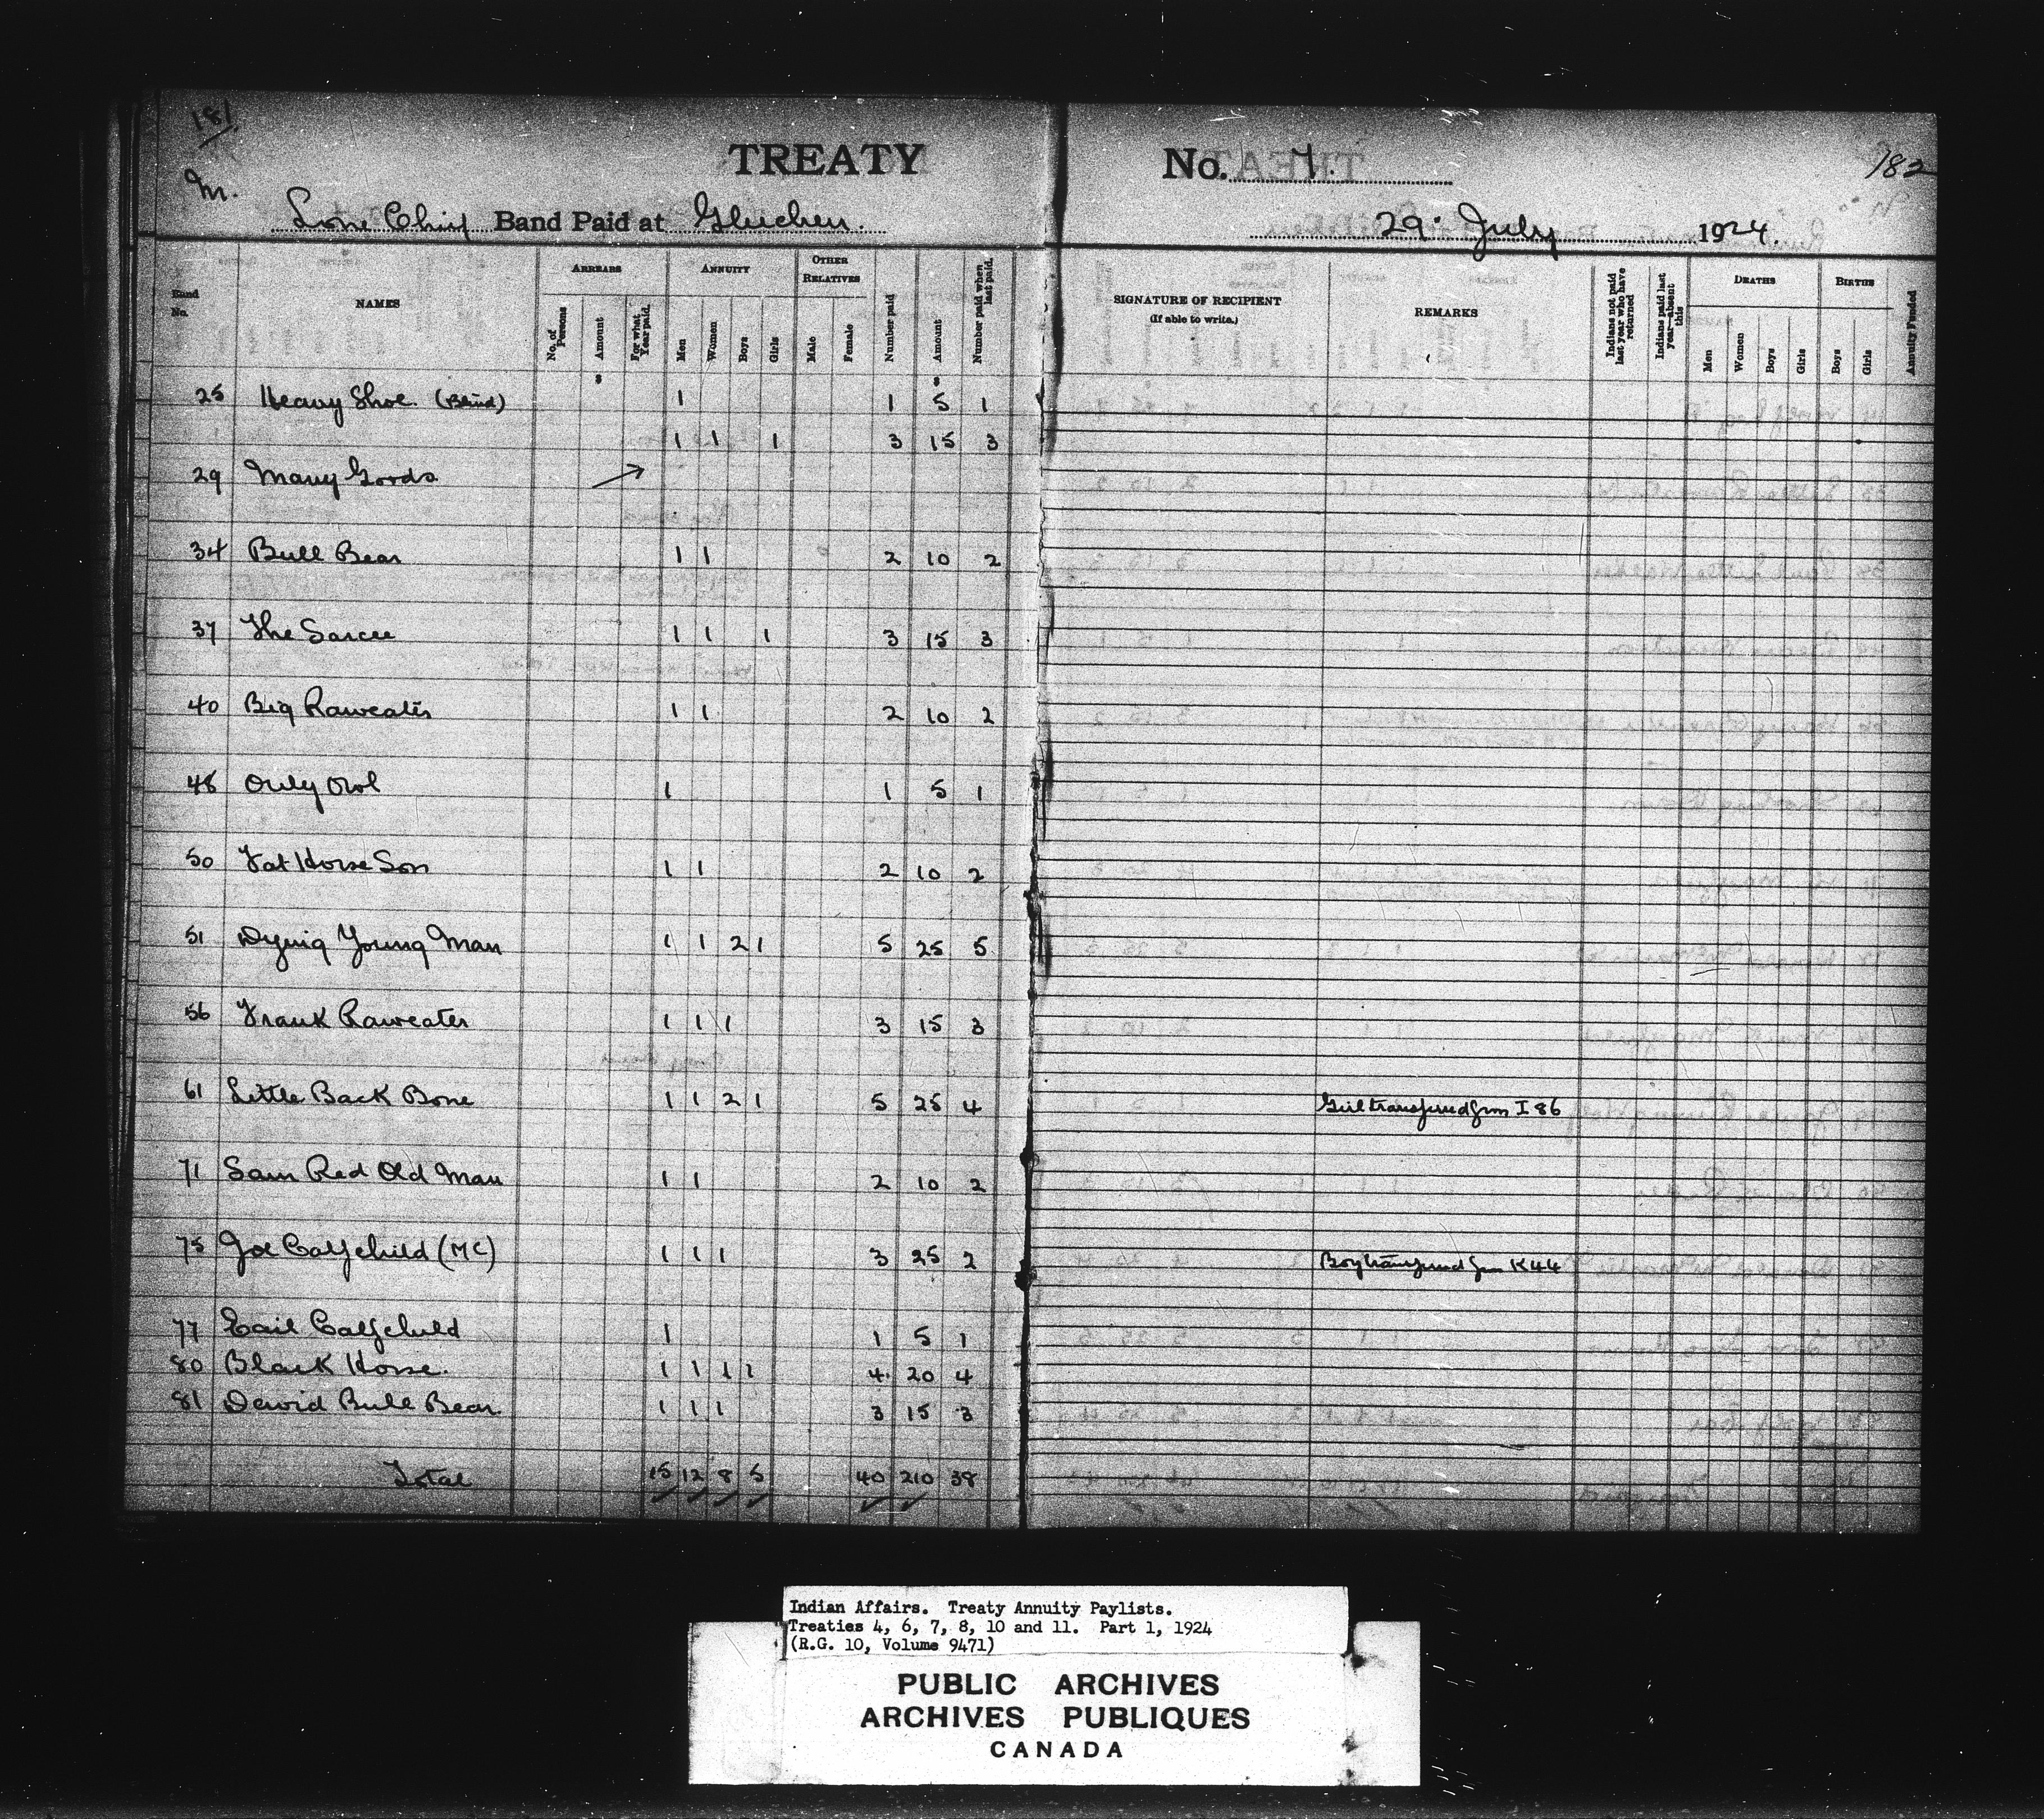 181
TREATY No. 7.
182
M.
Lone Chief Band Paid at Gleichen. 29 July 1924.
Band No. NAMES ARREARS No. of Persons Amount For what Year paid. ANNUITY Men Women Boys Girls OTHER RELATIVES Male Female Number paid Amount Number paid when last paid. SIGNATURE OF RECIPIENT (If able to write.) REMARKS Indians not paid last year who have returned Indians paid last year—absent this DEATHS Men Women Boys Girls BIRTHS Boys Girls Annuity Funded
$ $
25 Heavy Shoe. (Blind) 1 1 5 1
1 1 1 3 15 3
29 Many Goods
34 Bull Bear 1 1 2 10 2
37 The Sarcee 1 1 1 3 15 3
40 Big Raweater 1 1 2 10 2
48 Only Owl 1 1 5 1
50 Fat Horse Son 1 1 2 10 2
51 Dying Young Man 1 1 2 1 5 25 5
56 Frank Raweater 1 1 1 3 15 3
61 Little Back Bone 1 1 2 1 5 25 4 Girl transferred from I 86
71 Sam Red Old Man 1 1 2 10 2
75 Joe Calfchild (MC) 1 1 1 3 25 2 Boy transferred from K44
77 Calfchild 1 1 5 1
80 Black Horse. 1 1 1 1 4 20 4
81 David Bull Bear 1 1 1 3 15 3
Total 15 12 8 5 40 210 38
Indian Affairs. Treaty Annuity Paylists.
Treaties 4, 6, 7, 8, 10 and 11. Part 1, 1924
(R.G. 10, Volume 9471)
PUBLIC ARCHIVES
ARCHIVES PUBLIQUES
CANADA